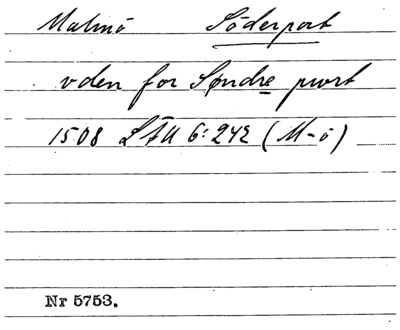 Malmö Söderport
vden for Søndre pwrt
1508 LÅU 6:242 (M-ö)
Nr 5753.